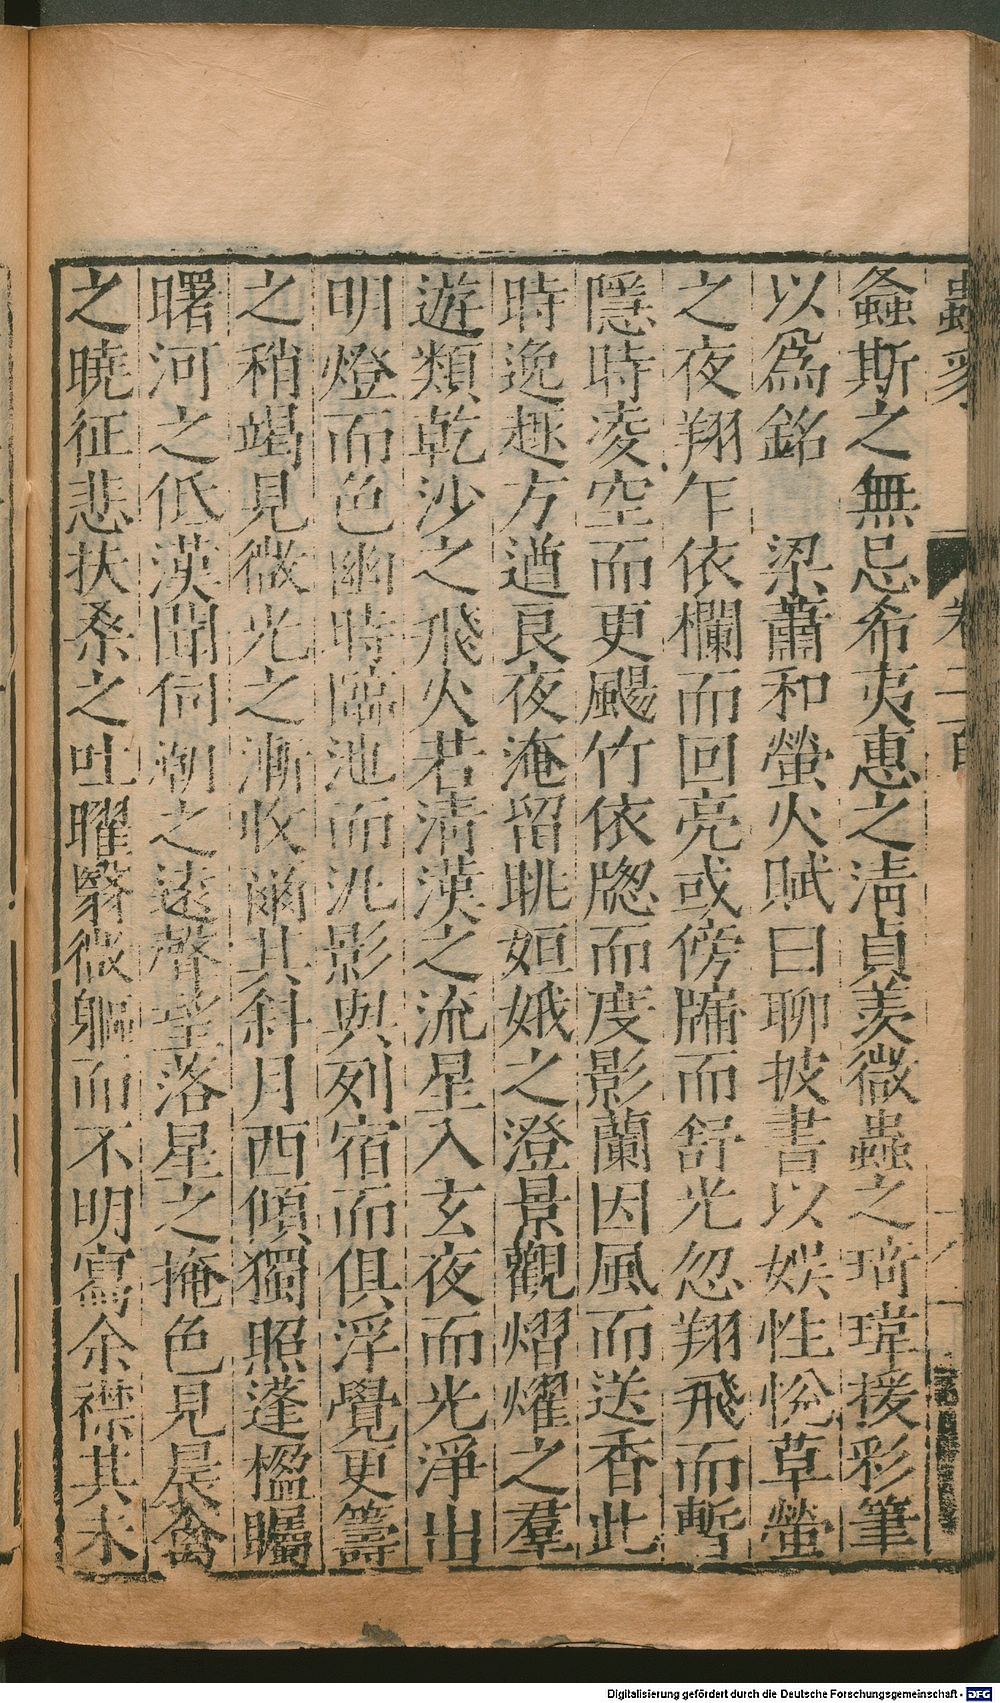 蟲豸
卷二百
螽斯之無忌希夷惠之清貞羨微蟲之琦瑋援彩筆
以爲銘 梁蕭和螢火賦曰聊披書以娛性悅草螢
之夜翔乍依欄而回亮或傍牖而舒光忽翔飛而暫
隱時凌空而更颺竹依牕而度影蘭因風而送香此
時逸趣方遒良夜淹留眺姮娥之澄景觀熠燿之羣
遊類乾沙之飛火若清漢之流星入玄夜而光淨出
明燈而色幽時臨池而泛影與列宿而俱浮覺更籌
之稍竭見微光之漸收爾其斜月西傾獨照蓬楹矚
曙河之低漢聞伺潮之遠聲望落星之掩色見晨禽
之曉征悲扶桑之吐曜翳微軀而不明寫余襟其未
Digitalisierung gefördert durch die Deutsche Forschungsgemeinschaft - DFG